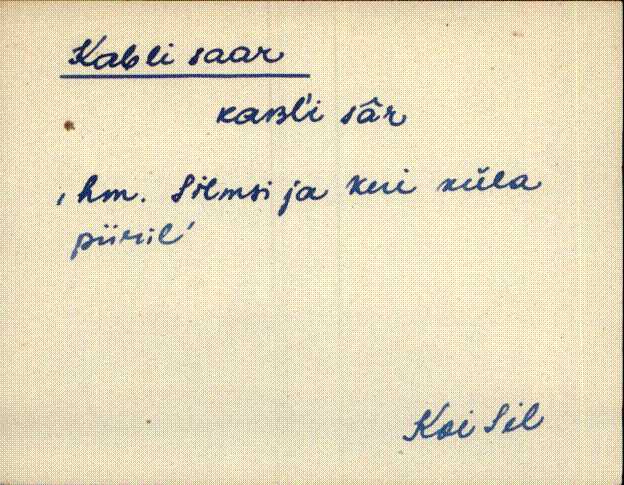 Kabli saar
kaʙl'i sâr
, hm. Silmsi ja Keri küla
piiril'
Koi Sil